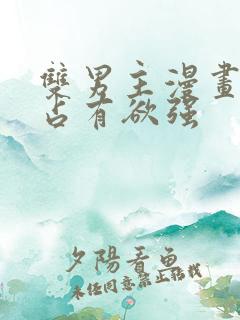 雙男主漫畫
占有欲强
夕陽看魚
未任同意禁止轉載